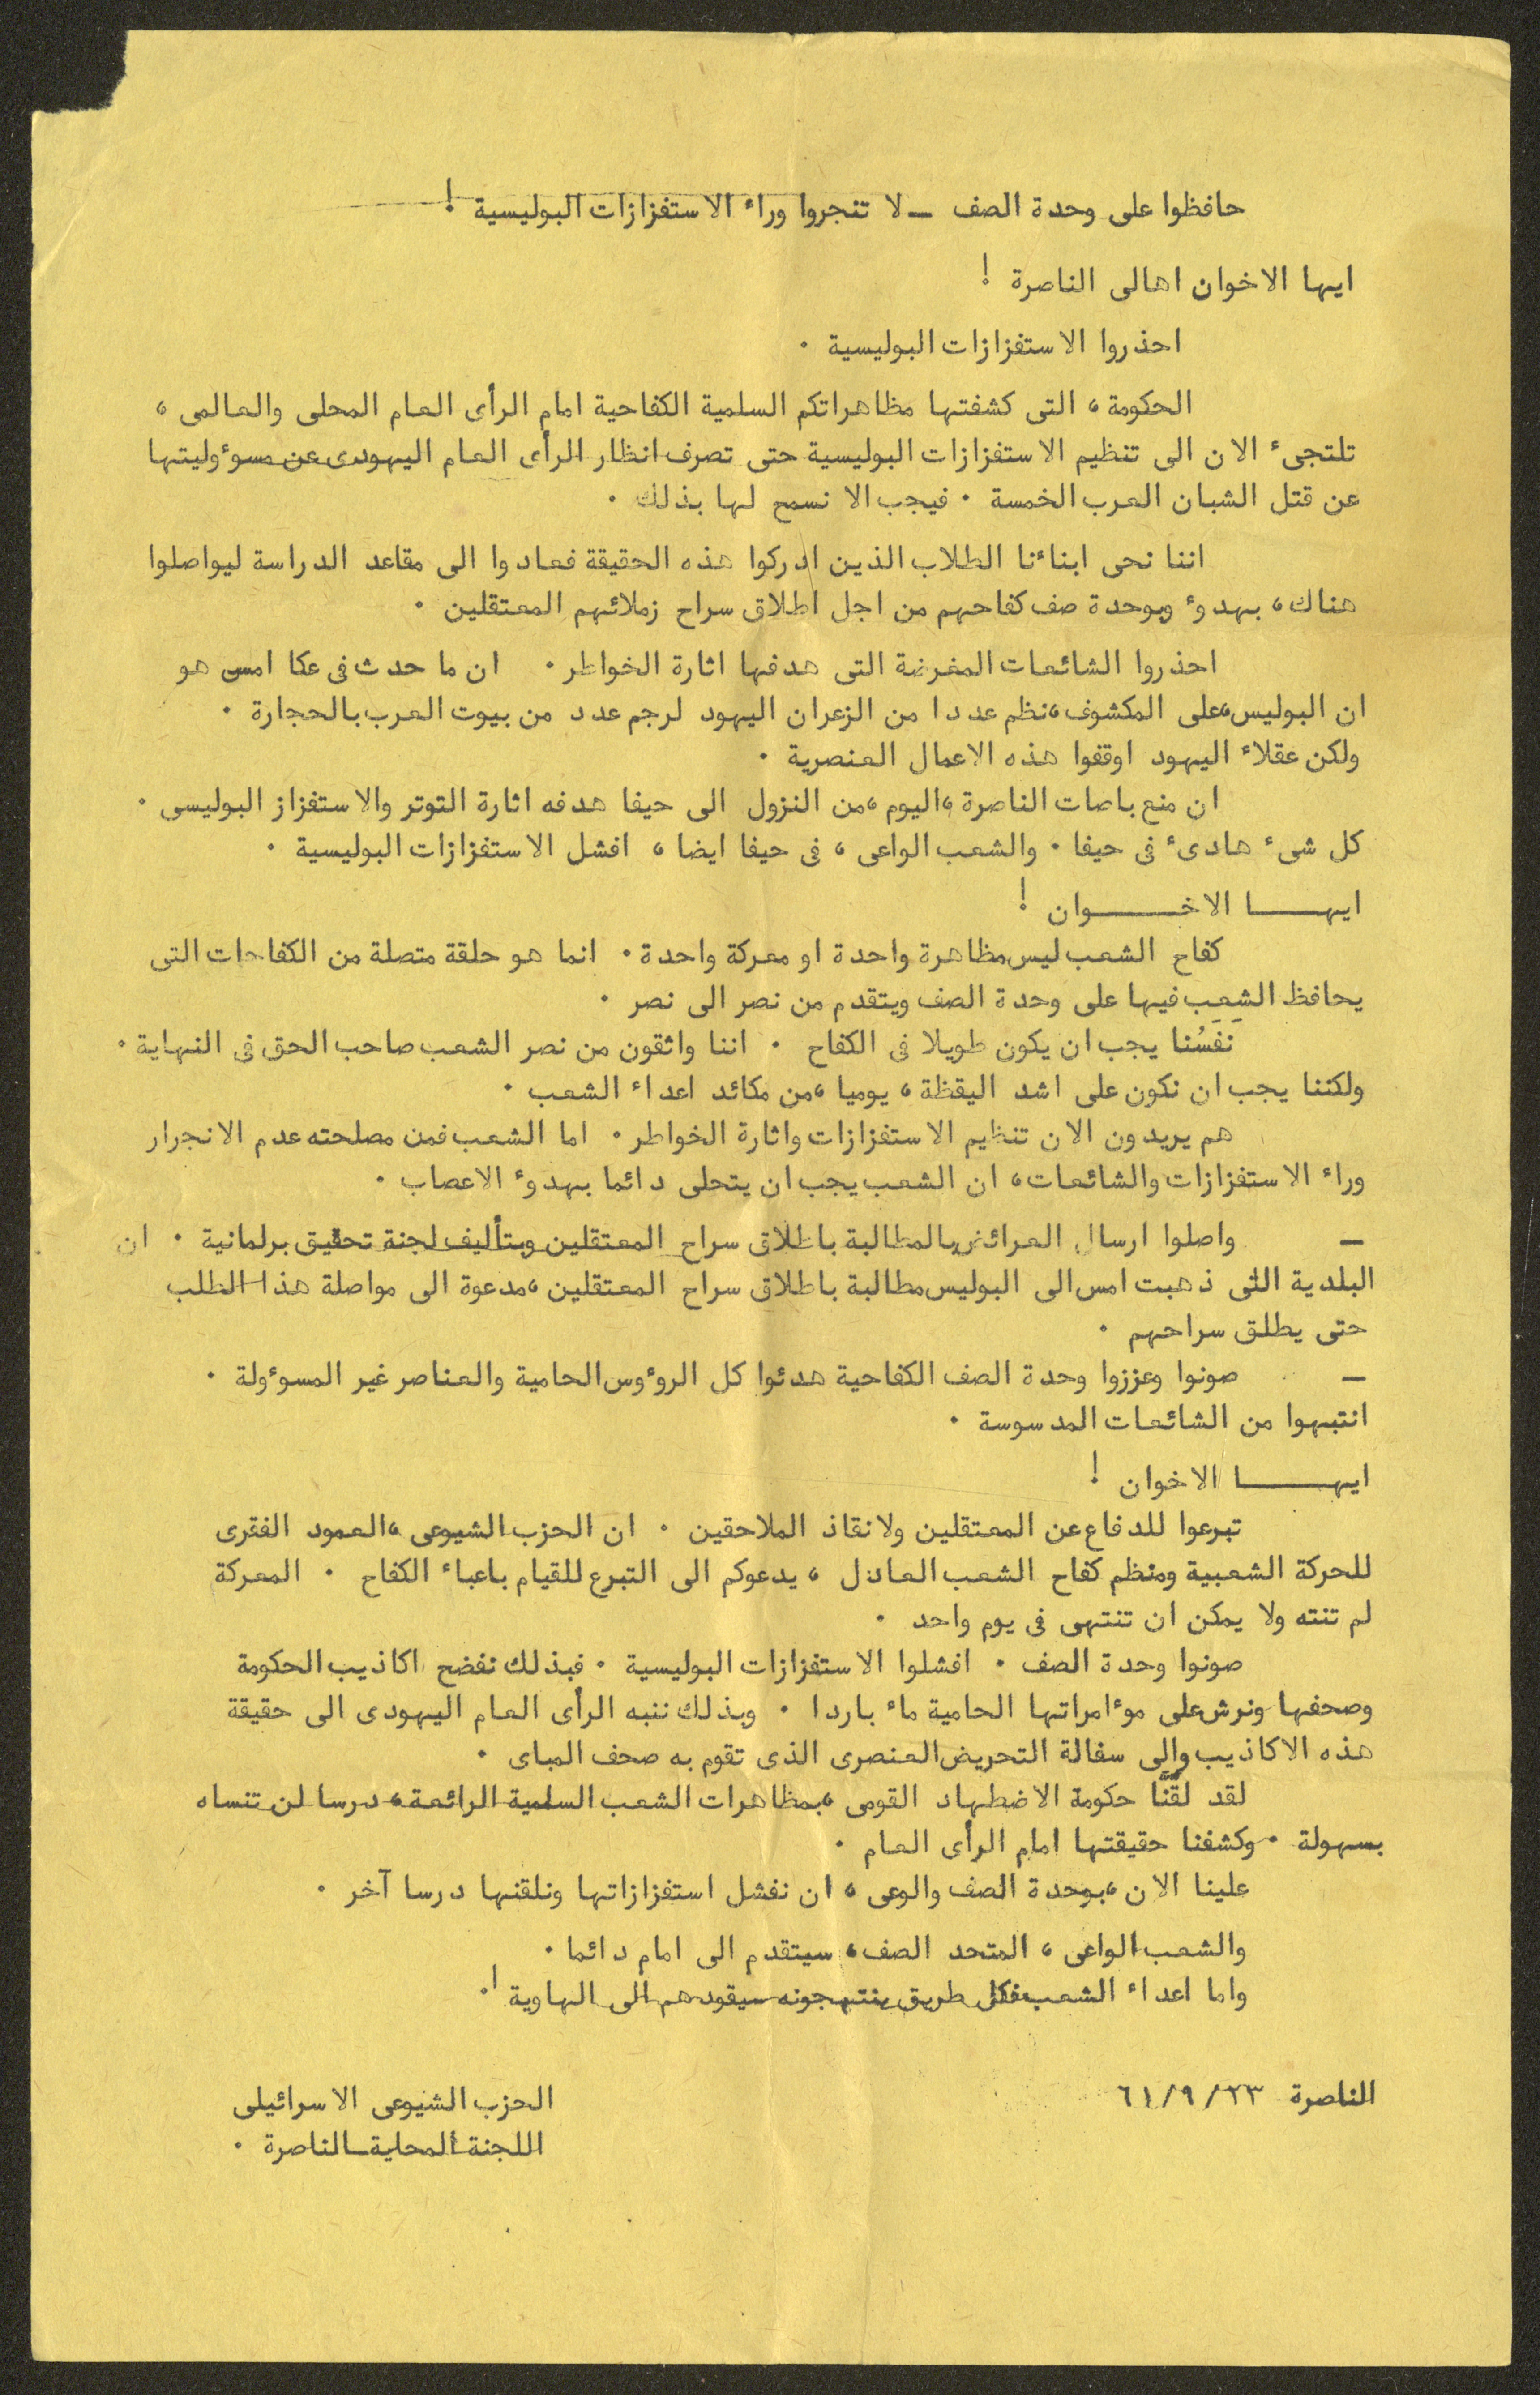 حافظوا على وحدة الصف – لا تنجروا وراء الاستفزازات البوليسية !
ايها الاخوان اهالى الناصرة !
احذروا الاستفزازات البوليسية .
الحكومة ، التى كشفتها مظاهراتكم السلمية الكفاحية امام الرأى العام المحلى والعالمى ،
تلتجىء الان الى تنظيم الاستفزازات البوليسية حتى تصرف انظار الرأى العام اليهودى عن مسوءوليتها
عن قتل الشبان العرب الخمسة . فيجب الا نسمح لها بذلك .
اننا نحى ابناءنا الطلاب الذين ادركوا هذه الحقيقة فعادوا الى مقاعد الدراسة ليواصلوا
هناك ، بهدوء وبوحدة صف كفاحهم من اجل اطلاق سراح زملائهم المعتقلين .
احذروا الشائعات المغرضة التى هدفها اثارة الخواطر . ان ما حدث فى عكا امس هو
ان البوليس ،على المكشوف ،نظم عددا من الزعران اليهود لرجم عدد من بيوت العرب بالحجارة .
ولكن عقلاء اليهود اوقفوا هذه الاعمال العنصرية .
ان منع باصات الناصرة ،اليوم ،من النزول الى حيفا هدفه اثارة التوتر والاستفزاز البوليسى .
كل شىء هادىء فى حيفا . والشعب الواعى ، فى حيفا ايضا ، افشل الاستفزازات البوليسية .
ايهـــــا الاخـــــوان !
كفاح الشعب ليس مظاهرة واحدة او معركة واحدة . انما هو حلقة متصلة من الكفاحات التى
يحافظ الشعب فيها على وحدة الصف ويتقدم من نصر الى نصر .
نَفَسُنا يجب ان يكون طويلا فى الكفاح . اننا واثقون من نصر الشعب صاحب الحق فى النهاية .
ولكننا يجب ان نكون على اشد اليقظة ، يوميا ،من مكائد اعداء الشعب .
هم يريدون الان تنظيم الاستفزازات واثارة الخواطر . اما الشعب فمن مصلحته عدم الانجرار
وراء الاستفزازات والشائعات ، ان الشعب يجب ان يتحلى دائما بهدوء الاعصاب .
– واصلوا ارسال العرائض بالمطالبة باطلاق سراح المعتقلين وبتأليف لجنة تحقيق برلمانية . ان
البلدية التى ذهبت امس الى البوليس مطالبة باطلاق سراح المعتقلين ،مدعوة الى مواصلة هذا الطلب
حتى يطلق سراحهم .
– صونوا وعززوا وحدة الصف الكفاحية هدئوا كل الروءوس الحامية والعناصر غير المسوءولة .
انتبهوا من الشائعات المدسوسة .
ايهـــــا الاخوان !
تبرعوا للدفاع عن المعتقلين ولانقاذ الملاحقين . ان الحزب الشيوعى ،العمود الفقرى
للحركة الشعبية ومنظم كفاح الشعب العادل ، يدعوكم الى التبرع للقيام باعباء الكفاح . المعركة
لم تنته ولا يمكن ان تنتهى فى يوم واحد .
صونوا وحدة الصف . افشلوا الاستفزازات البوليسية . فبذلك نفضح اكاذيب الحكومة
وصحفها ونرش على موءامراتها الحامية ماء باردا . وبذلك ننبه الرأى العام اليهودى الى حقيقة
هذه الاكاذيب والى سفالة التحريض العنصرى الذى تقوم به صحف المباى .
لقد لقّنّا حكومة الاضطهاد القومى ،بمظاهرات الشعب السلمية الرائعة ، درسا لن تنساه
بسهولة . وكشفنا حقيقتها امام الرأى العام .
علينا الان ،بوحدة الصف والوعى ، ان نفشل استفزازاتها ونلقنها درسا آخر .
والشعب الواعى ، المتحد الصف ، سيتقدم الى امام دائما .
واما اعداء الشعب فكل طريق ينتهجونه سيقودهم الى الهاوية !
الناصرة ٦١/٩/٢٣
الحزب الشيوعى الاسرائيلى
اللجنة المحلية – الناصرة .